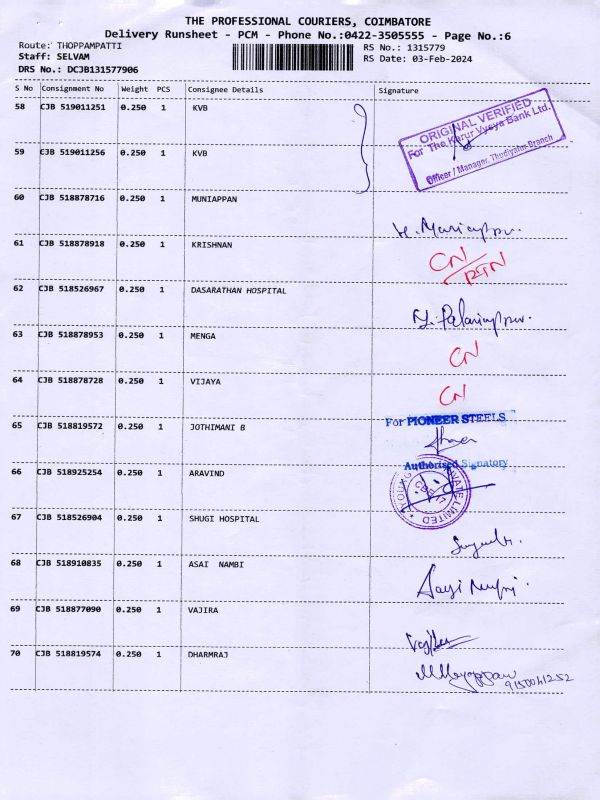 THE PROFESSIONAL COURIERS, COIMBATORE
Delivery Runsheet - PCM - Phone No.:0422-3505555 - Page No.:6
Route: THOPPAMPATTI RS No.: 1315779
Staff: SELVAM RS Date: 03-Feb-2024
DRS No.: DCJB131577906
S No Consignment No Weight PCS Consignee Details Signature
58 CJB 519011251 0.250 1 KVB
ORIGINAL VERIFIED
For The Karur Vysya Bank Ltd.
59 CJB 519011256 0.250 1 KVB
Officer / Manager, Thudiyalur Branch
60 CJB 518878716 0.250 1 MUNIAPPAN
61 CJB 518878918 0.250 1 KRISHNAN
CN
RTN
62 CJB 518526967 0.250 1 DASARATHAN HOSPITAL
63 CJB 518878953 0.250 1 MENGA
CN
64 CJB 518878728 0.250 1 VIJAYA
CN
For PIONEER STEELS
65 CJB 518819572 0.250 1 JOTHIMANI B
Authorised Signatory
66 CJB 518925254 0.250 1 ARAVIND
PRIVATE LIMITED
67 CJB 518526904 0.250 1 SHUGI HOSPITAL
68 CJB 518910835 0.250 1 ASAI NAMBI
69 CJB 518877090 0.250 1 VAJIRA
70 CJB 518819574 0.250 1 DHARMRAJ